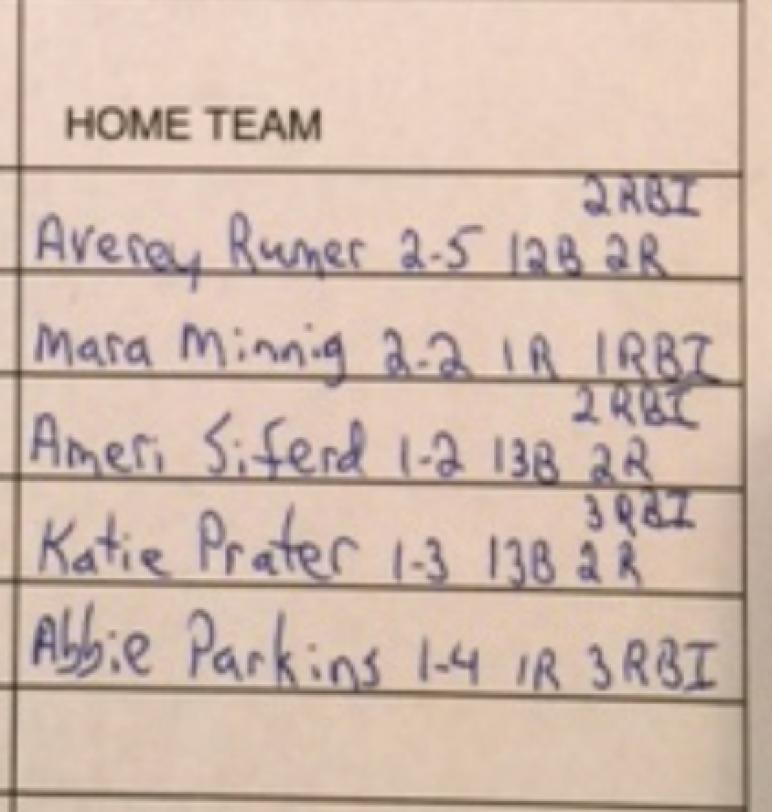 HOME TEAM
2RBI
Averey Rumer 2-5 12B 2R
Mara Minnig 2-2 1R 1RBI
2RBI
Ameri Siferd 1-2 13B 2R
3RBI
Katie Prater 1-3 13B 2R
Abbie Parkins 1-4 1R 3RBI